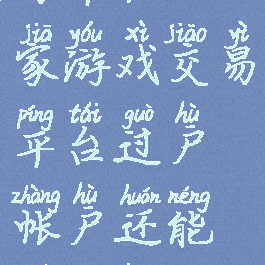 jiā yóu xì jiāo yì
家游戏交易
píng tái guò hù
平台过户
zhàng hù huán néng
帐户还能